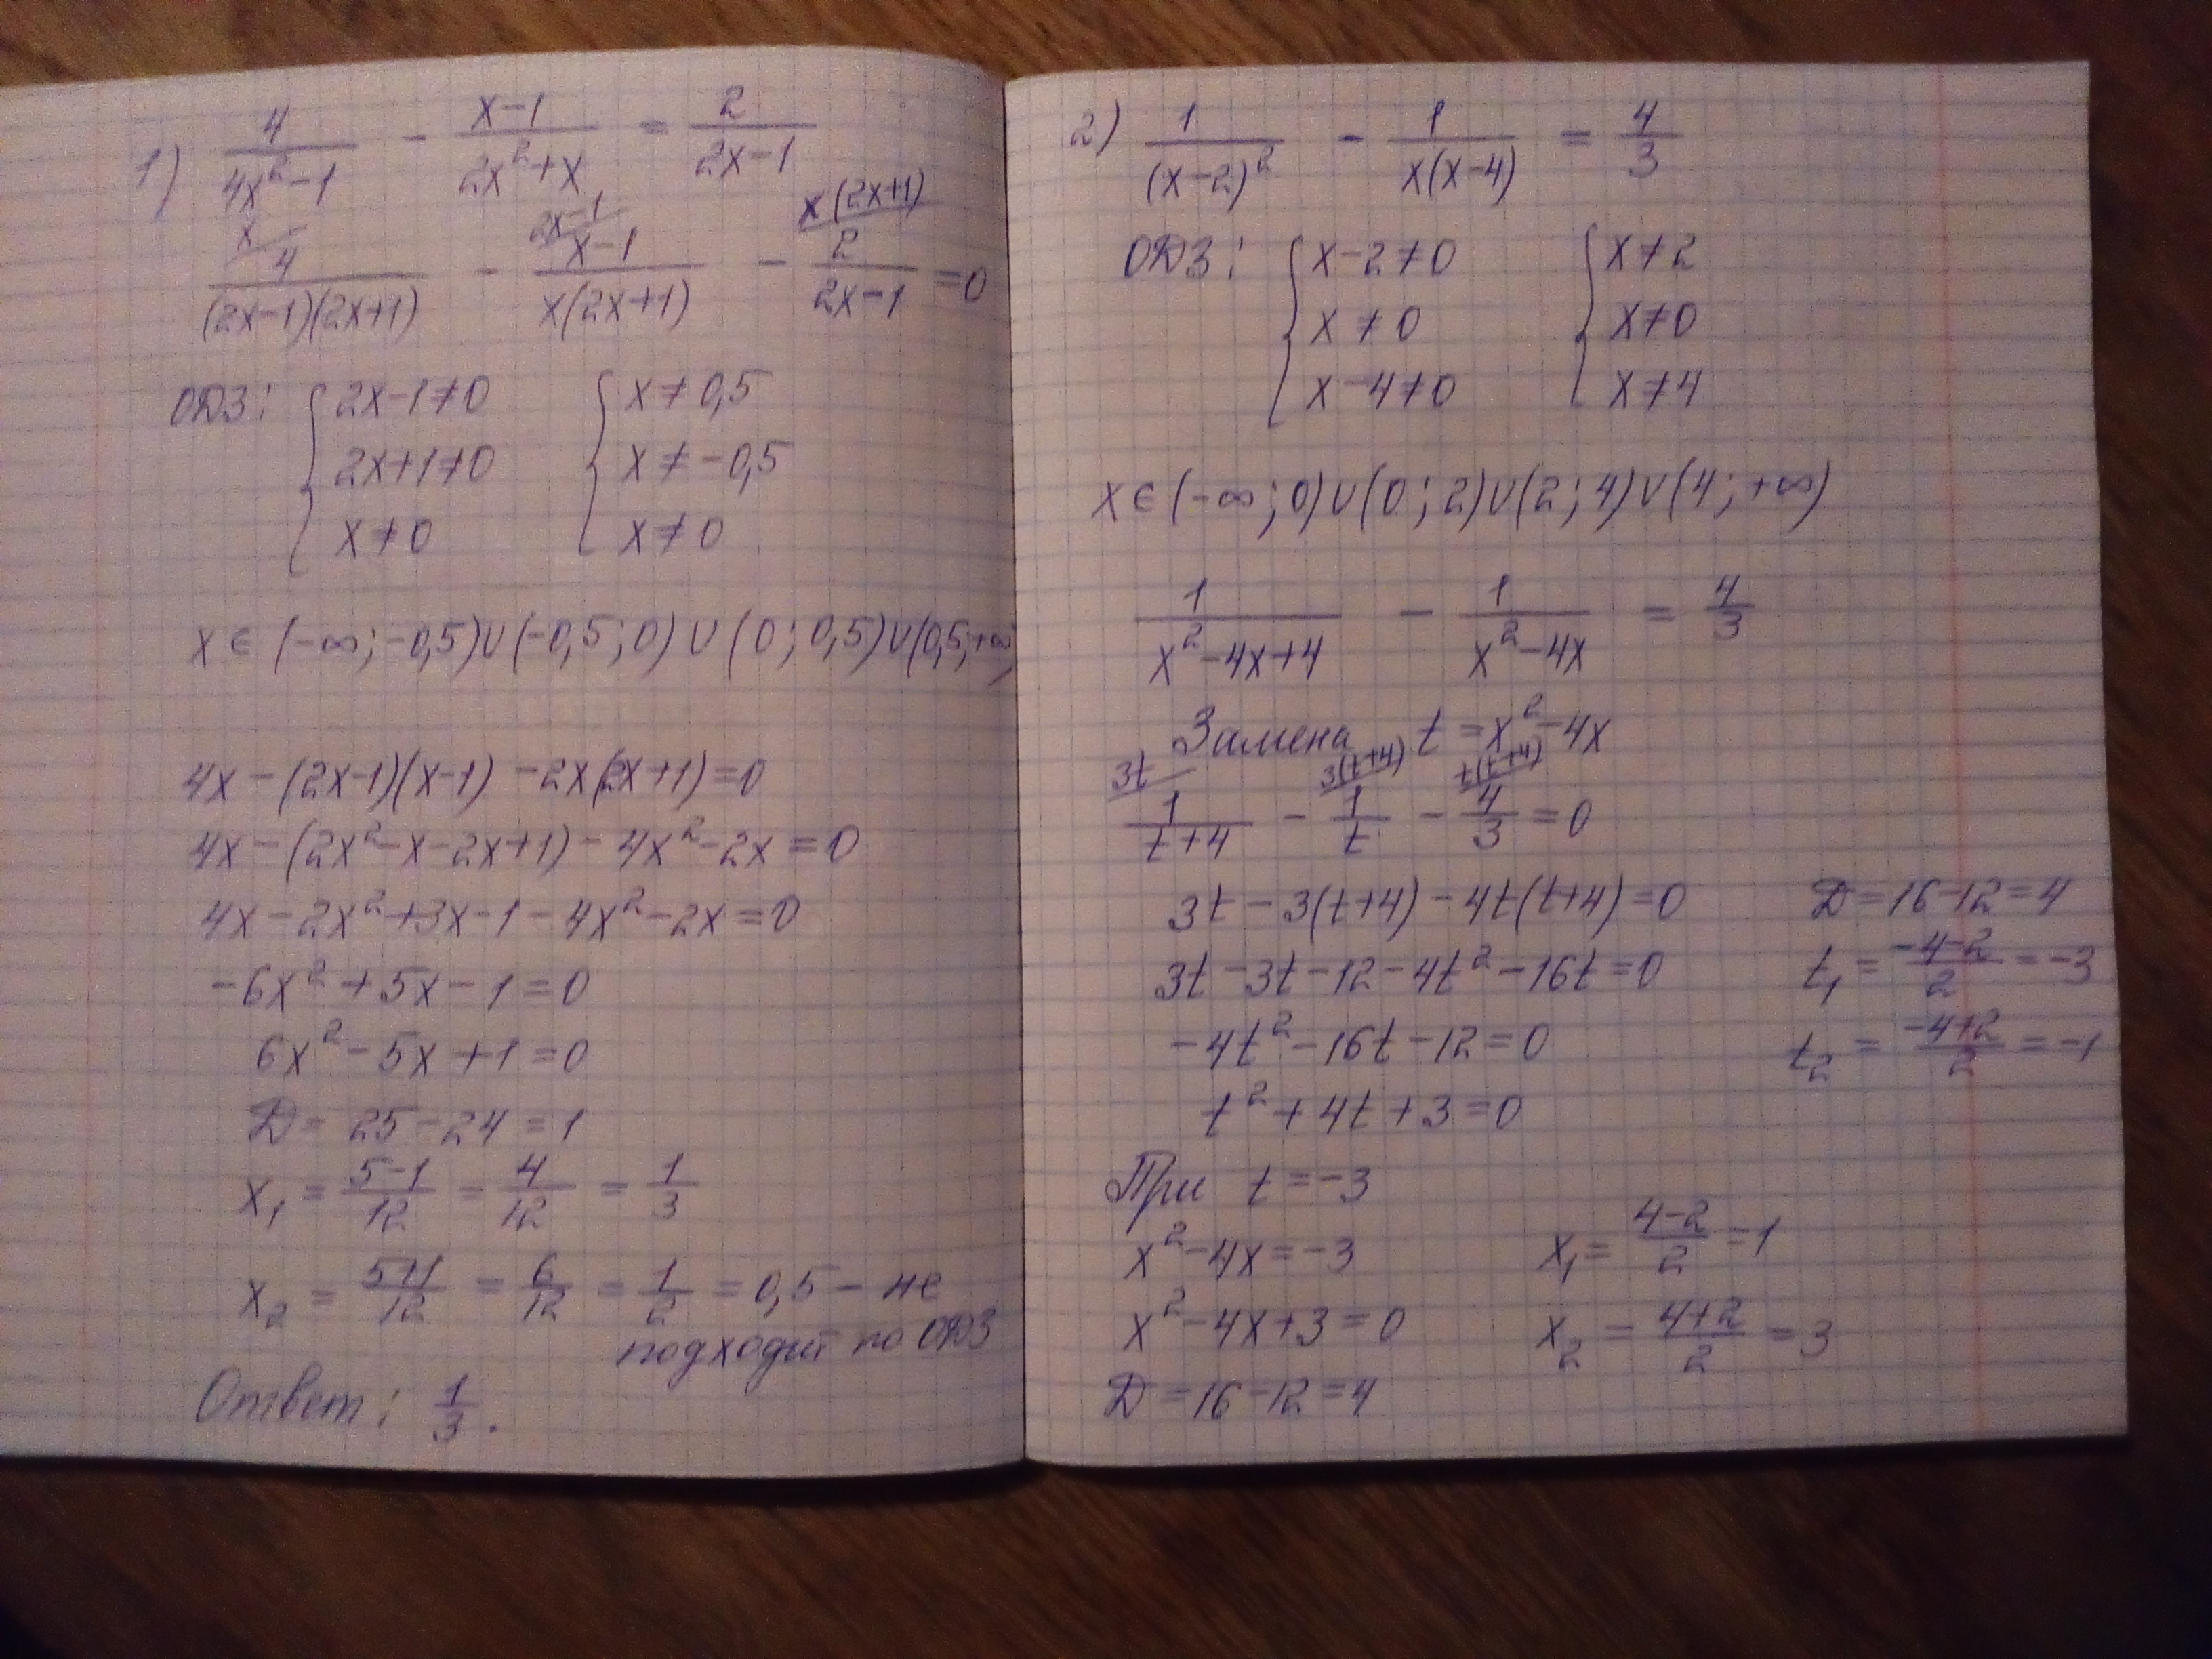 1) 4/(4x²-1) - (x-1)/(2x²+x) = 2/(2x-1)
x/ 2x-1/ x(2x+1)/
4/((2x-1)(2x+1)) - (x-1)/(x(2x+1)) - 2/(2x-1) = 0
ОДЗ: { 2x-1≠0 { x≠0,5
2x+1≠0 x≠-0,5
x≠0 x≠0
x∈(-∞;-0,5)∪(-0,5;0)∪(0;0,5)∪(0,5;+∞)
4x-(2x-1)(x-1)-2x(2x+1)=0
4x-(2x²-x-2x+1)-4x²-2x=0
4x-2x²+3x-1-4x²-2x=0
-6x²+5x-1=0
6x²-5x+1=0
D=25-24=1
x₁ = (5-1)/12 = 4/12 = 1/3
x₂ = (5+1)/12 = 6/12 = 1/2 = 0,5 - не
подходит по ОДЗ
Ответ: 1/3.
2) 1/(x-2)² - 1/(x(x-4)) = 4/3
ОДЗ: { x-2≠0 { x≠2
x≠0 x≠0
x-4≠0 x≠4
x∈(-∞;0)∪(0;2)∪(2;4)∪(4;+∞)
1/(x²-4x+4) - 1/(x²-4x) = 4/3
Замена t=x²-4x
3t/ 3(t+4)/ t(t+4)/
1/(t+4) - 1/t - 4/3 = 0
3t-3(t+4)-4t(t+4)=0
3t-3t-12-4t²-16t=0
-4t²-16t-12=0
t²+4t+3=0
D=16-12=4
t₁ = (-4-2)/2 = -3
t₂ = (-4+2)/2 = -1
При t=-3
x²-4x=-3
x²-4x+3=0
D=16-12=4
x₁ = (4-2)/2 = 1
x₂ = (4+2)/2 = 3